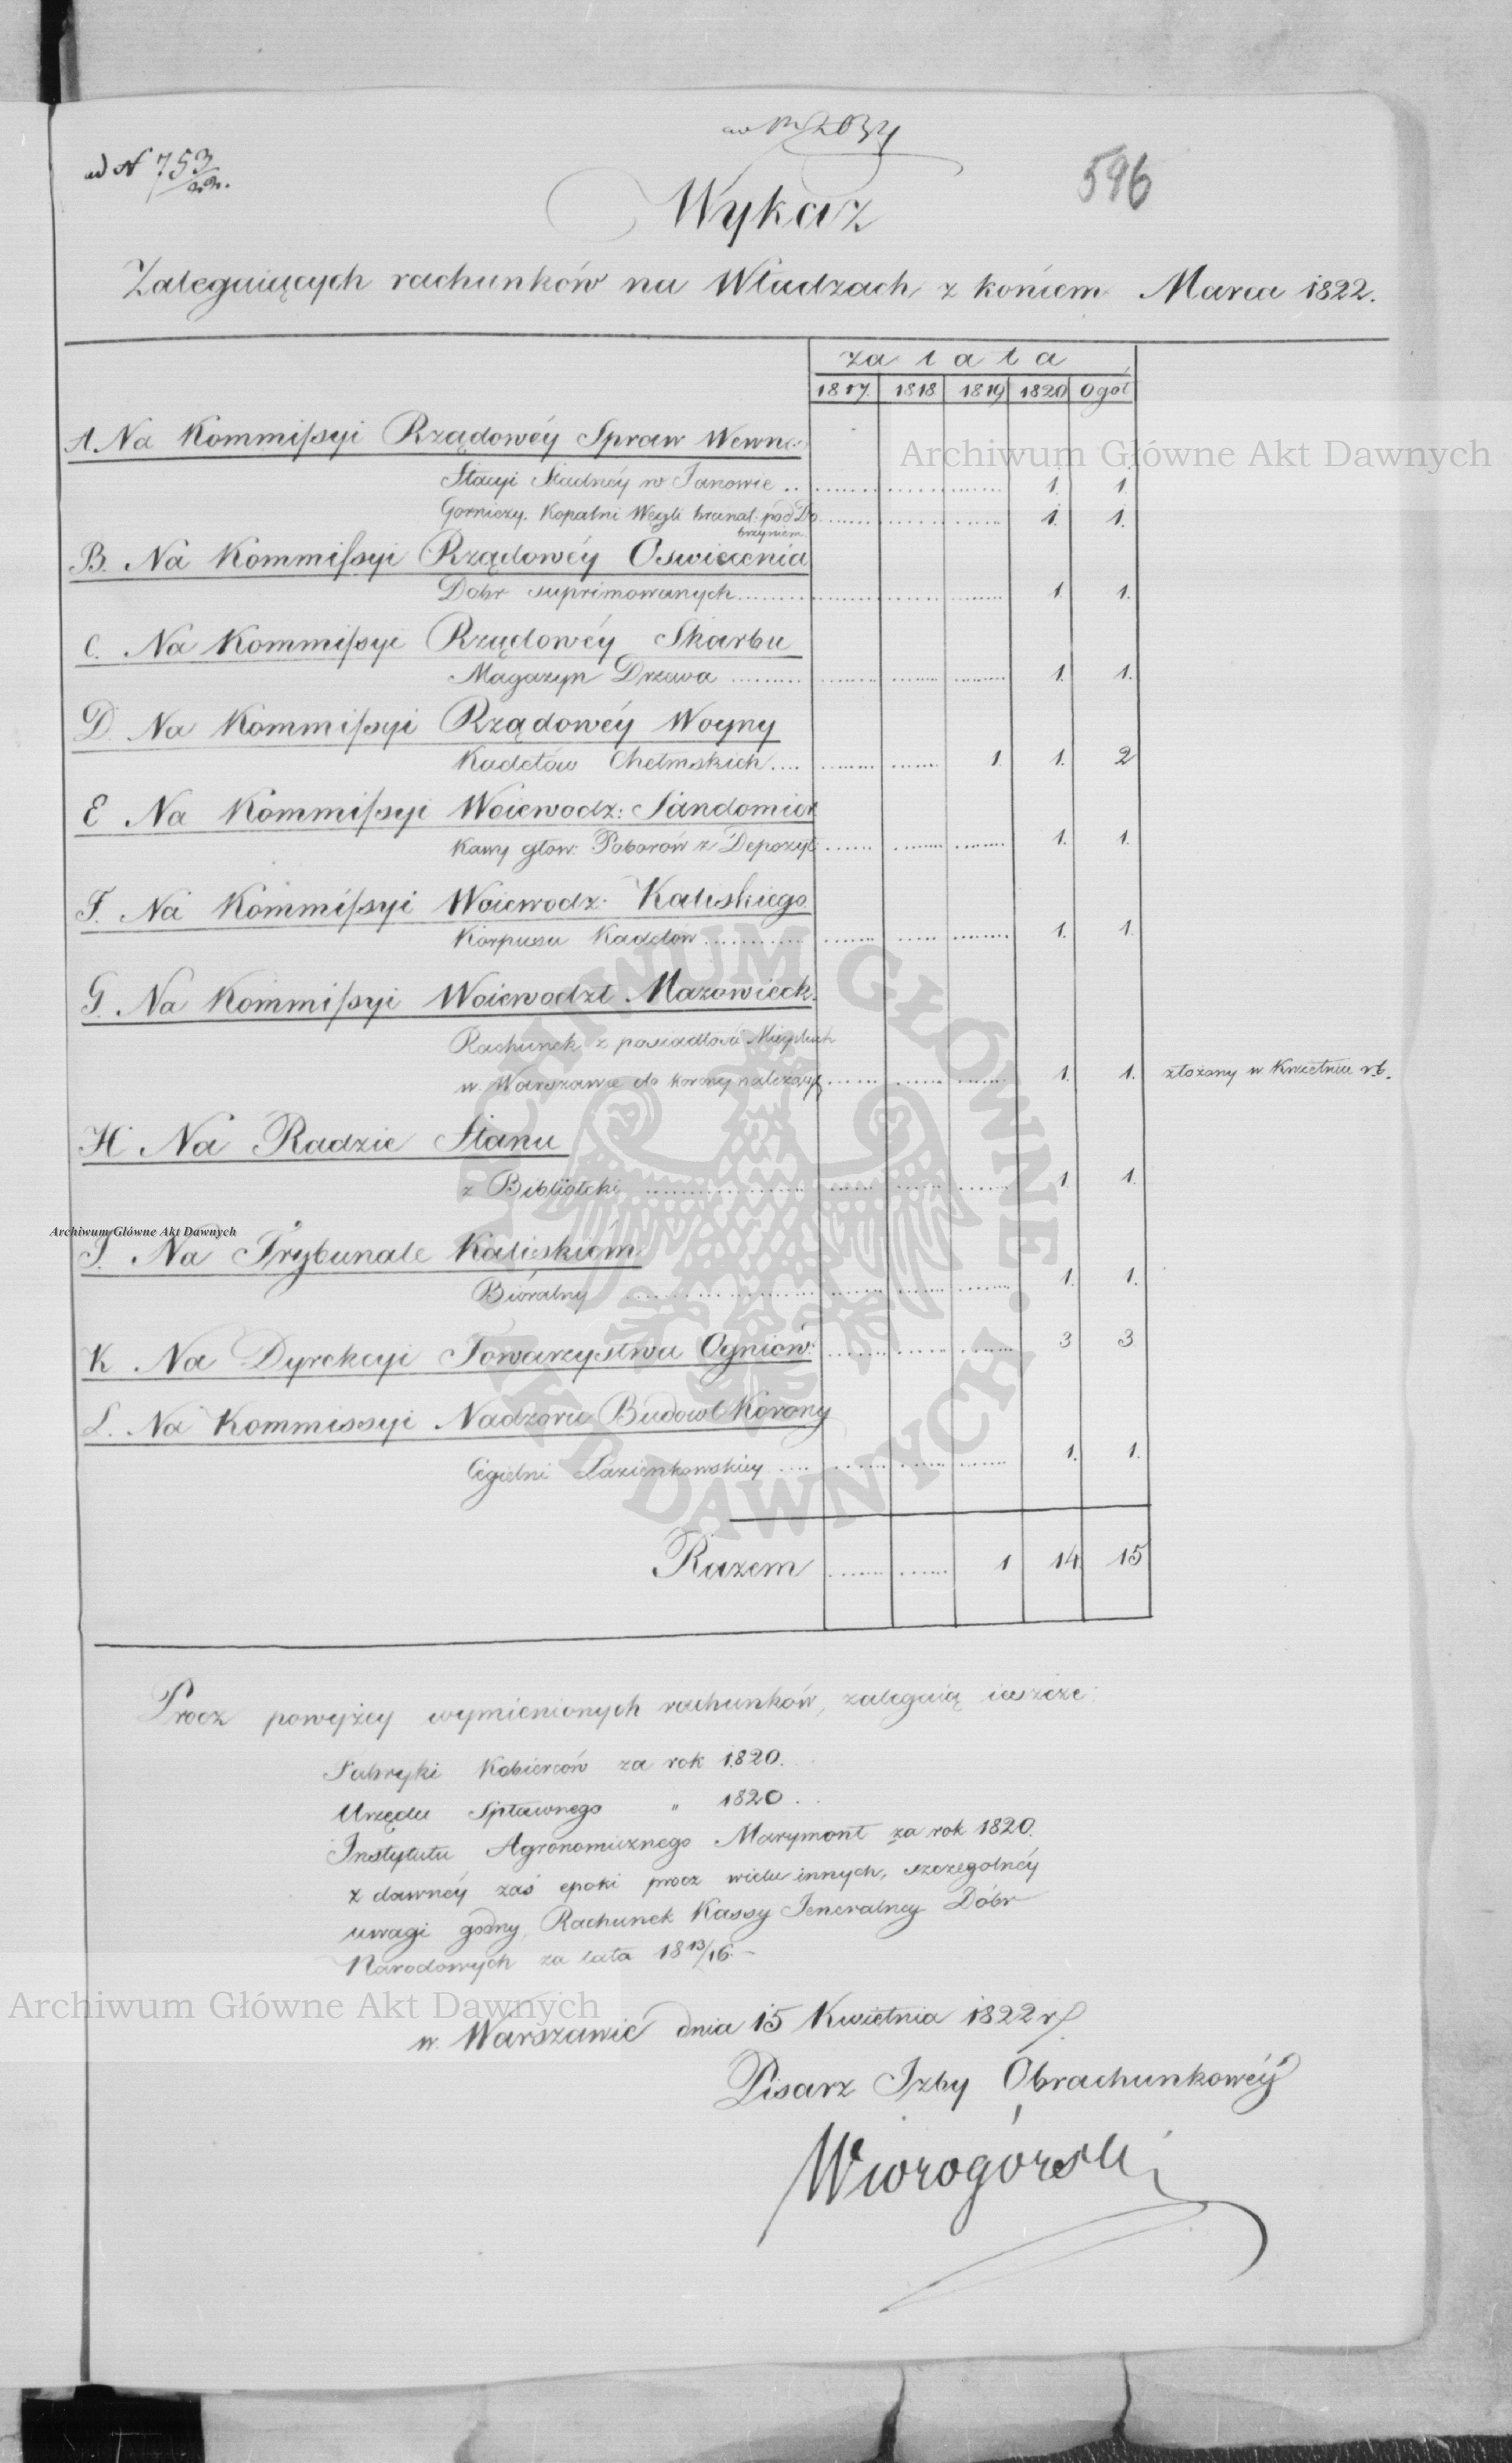 ad N 753/22.
596
Wykaz
Zalegaiących rachunków na Władzach z końcem Marca 1822.
za lata
1817. 1818 1819 1820 Ogół
A. Na Kommissyi Rządowéy Spraw Wewn:
Stacyi Stadnéy w Janowie .. 1. 1.
Gorniczy. Kopalni Węgli brunat: pod Do 1. 1.
brzyniem
B. Na Kommissyi Rządowéy Oswiecenia
Dobr suprimowanych 1. 1.
C. Na Kommissyi Rządowéy Skarbu
Magazyn Drzewa 1. 1.
D. Na Kommissyi Rządowéy Woyny
Kadetów Chełmskich 1. 1. 2
E Na Kommissyi Woiewodz: Sandomier
Kassy głow: Poborów z Depozyt 1. 1.
F. Na Kommissyi Woiewodz: Kaliskiego
Korpusu Kadetów 1. 1.
G. Na Kommissyi Woiewodzt Mazowieck.
Rachunek z posiadłości Mieyskich
w Warszawie do korony należący 1. 1. złożony w Kwietniu r.b.
H Na Radzie Stanu
z Biblioteki 1. 1.
I. Na Trybunale Kaliskiém
Bióralny 1. 1.
K Na Dyrekcyi Towarzystwa Ogniow: 3 3
L. Na Kommissyi Nadzoru Budowl Korony
Cegielni Łazienkowskiey 1. 1.
Razem 1 14. 15
Procz powyżey wymienionych rachunków, zalegaią ieszcze:
Fabryki Kobierców za rok 1820.
Urzędu Spławnego " 1820.
Instytutu Agronomicznego Marymont za rok 1820.
z dawnéy zaś epoki procz wielu innych, szczególnéy
uwagi godny, Rachunek Kassy Jeneralney Dóbr
Narodowych za lata 18 13/16.-
w Warszawie dnia 15 Kwietnia 1822 r.
Pisarz Izby Obrachunkowéy
Wiorogórski
Archiwum Główne Akt Dawnych
Archiwum Główne Akt Dawnych
Archiwum Główne Akt Dawnych
ARCHIWUM GŁÓWNE AKT DAWNYCH